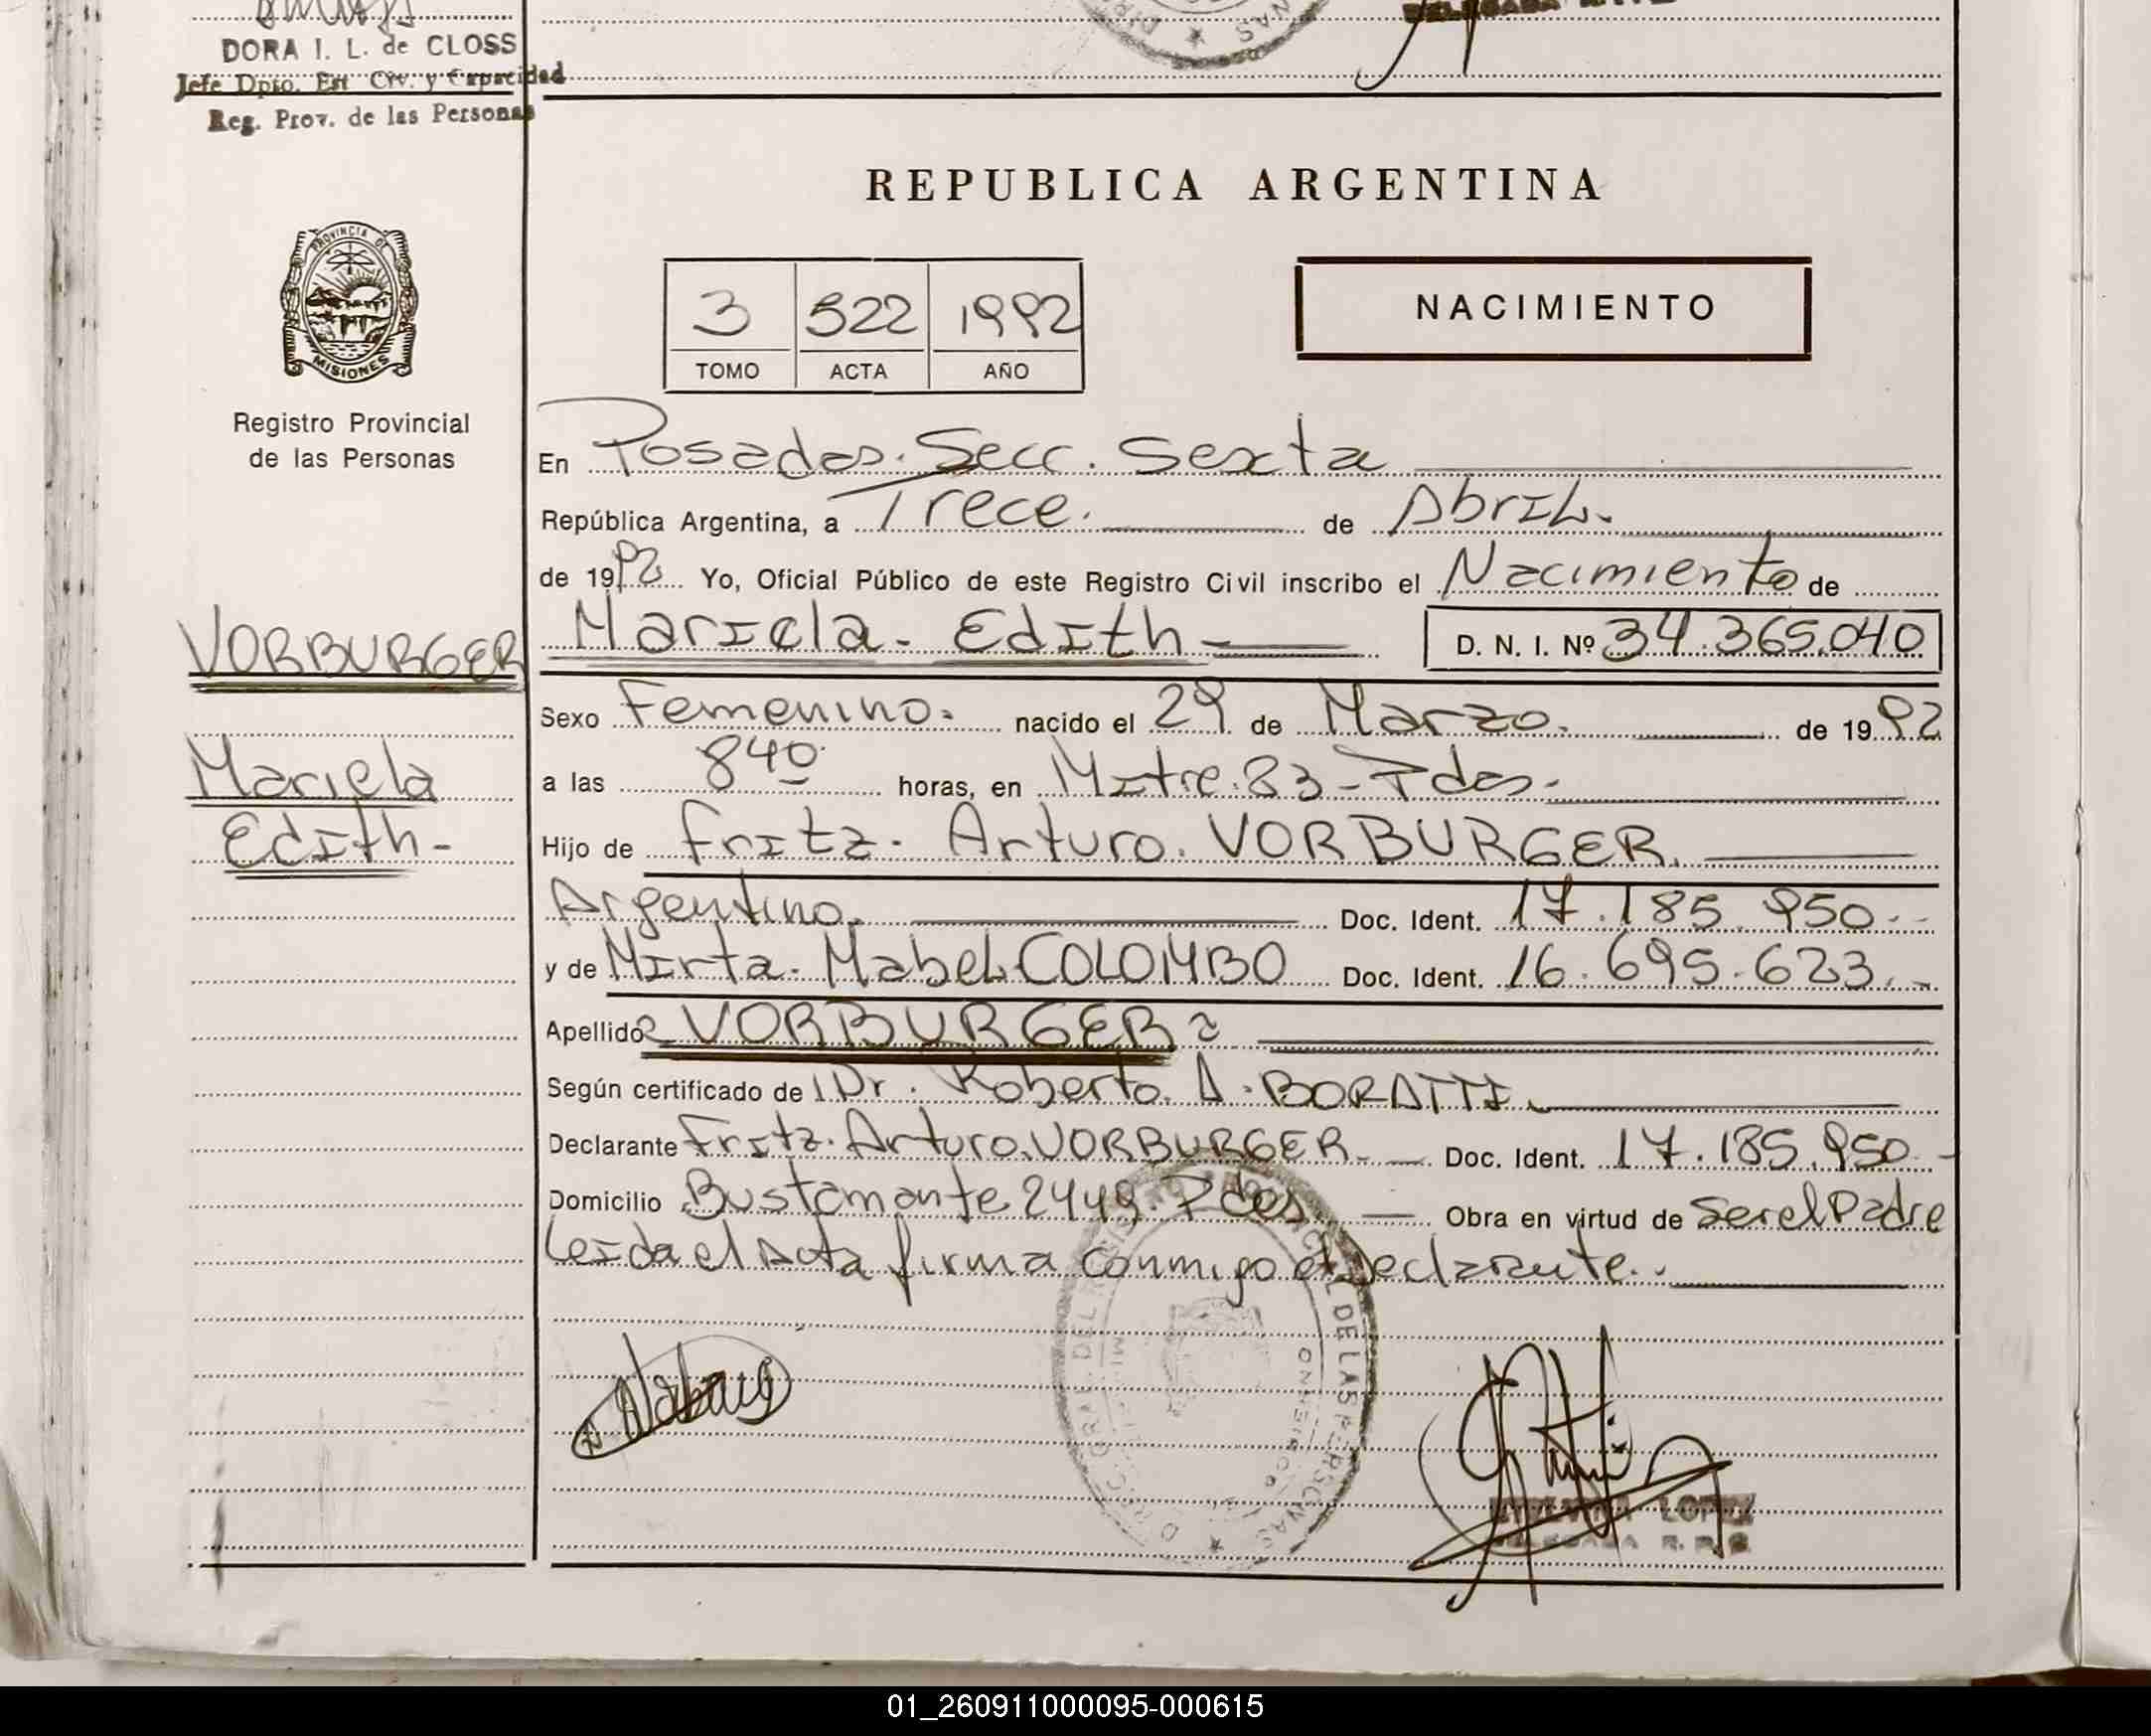 DORA I. L. de CLOSS
Jefe Dpto. Est. Civ. y Capacidad
Reg. Prov. de las Personas
REPUBLICA ARGENTINA
PROVINCIA DE
MISIONES
Registro Provincial
de las Personas
3 522 1992
TOMO ACTA AÑO
NACIMIENTO
En Posadas. Secc. Sexta
República Argentina, a Trece. de Abril.
de 1992 Yo, Oficial Público de este Registro Civil inscribo el Nacimiento de
Mariela - Edith - D. N. I. Nº 34.365.040
VORBURGER
Mariela
Edith-
Sexo Femenino. nacido el 29 de Marzo. de 1992
a las 840 horas, en Mitre. 83 - Pdas.
Hijo de Fritz. Arturo. VORBURGER.
Argentino. Doc. Ident. 17.185.950
y de Mirta. Mabel COLOMBO Doc. Ident. 16.695.623.
Apellido VORBURGER
Según certificado de Dr. Roberto. A. BORATTI.
Declarante Fritz. Arturo. VORBURGER. Doc. Ident. 17.185.950
Domicilio Bustamante 2449. Pdas Obra en virtud de Ser el Padre
Leida el Acta firma conmigo el Declarante.
DEL DE LAS PERSONAS
LOPEZ
DELEGADA R. P.
01_260911000095-000615